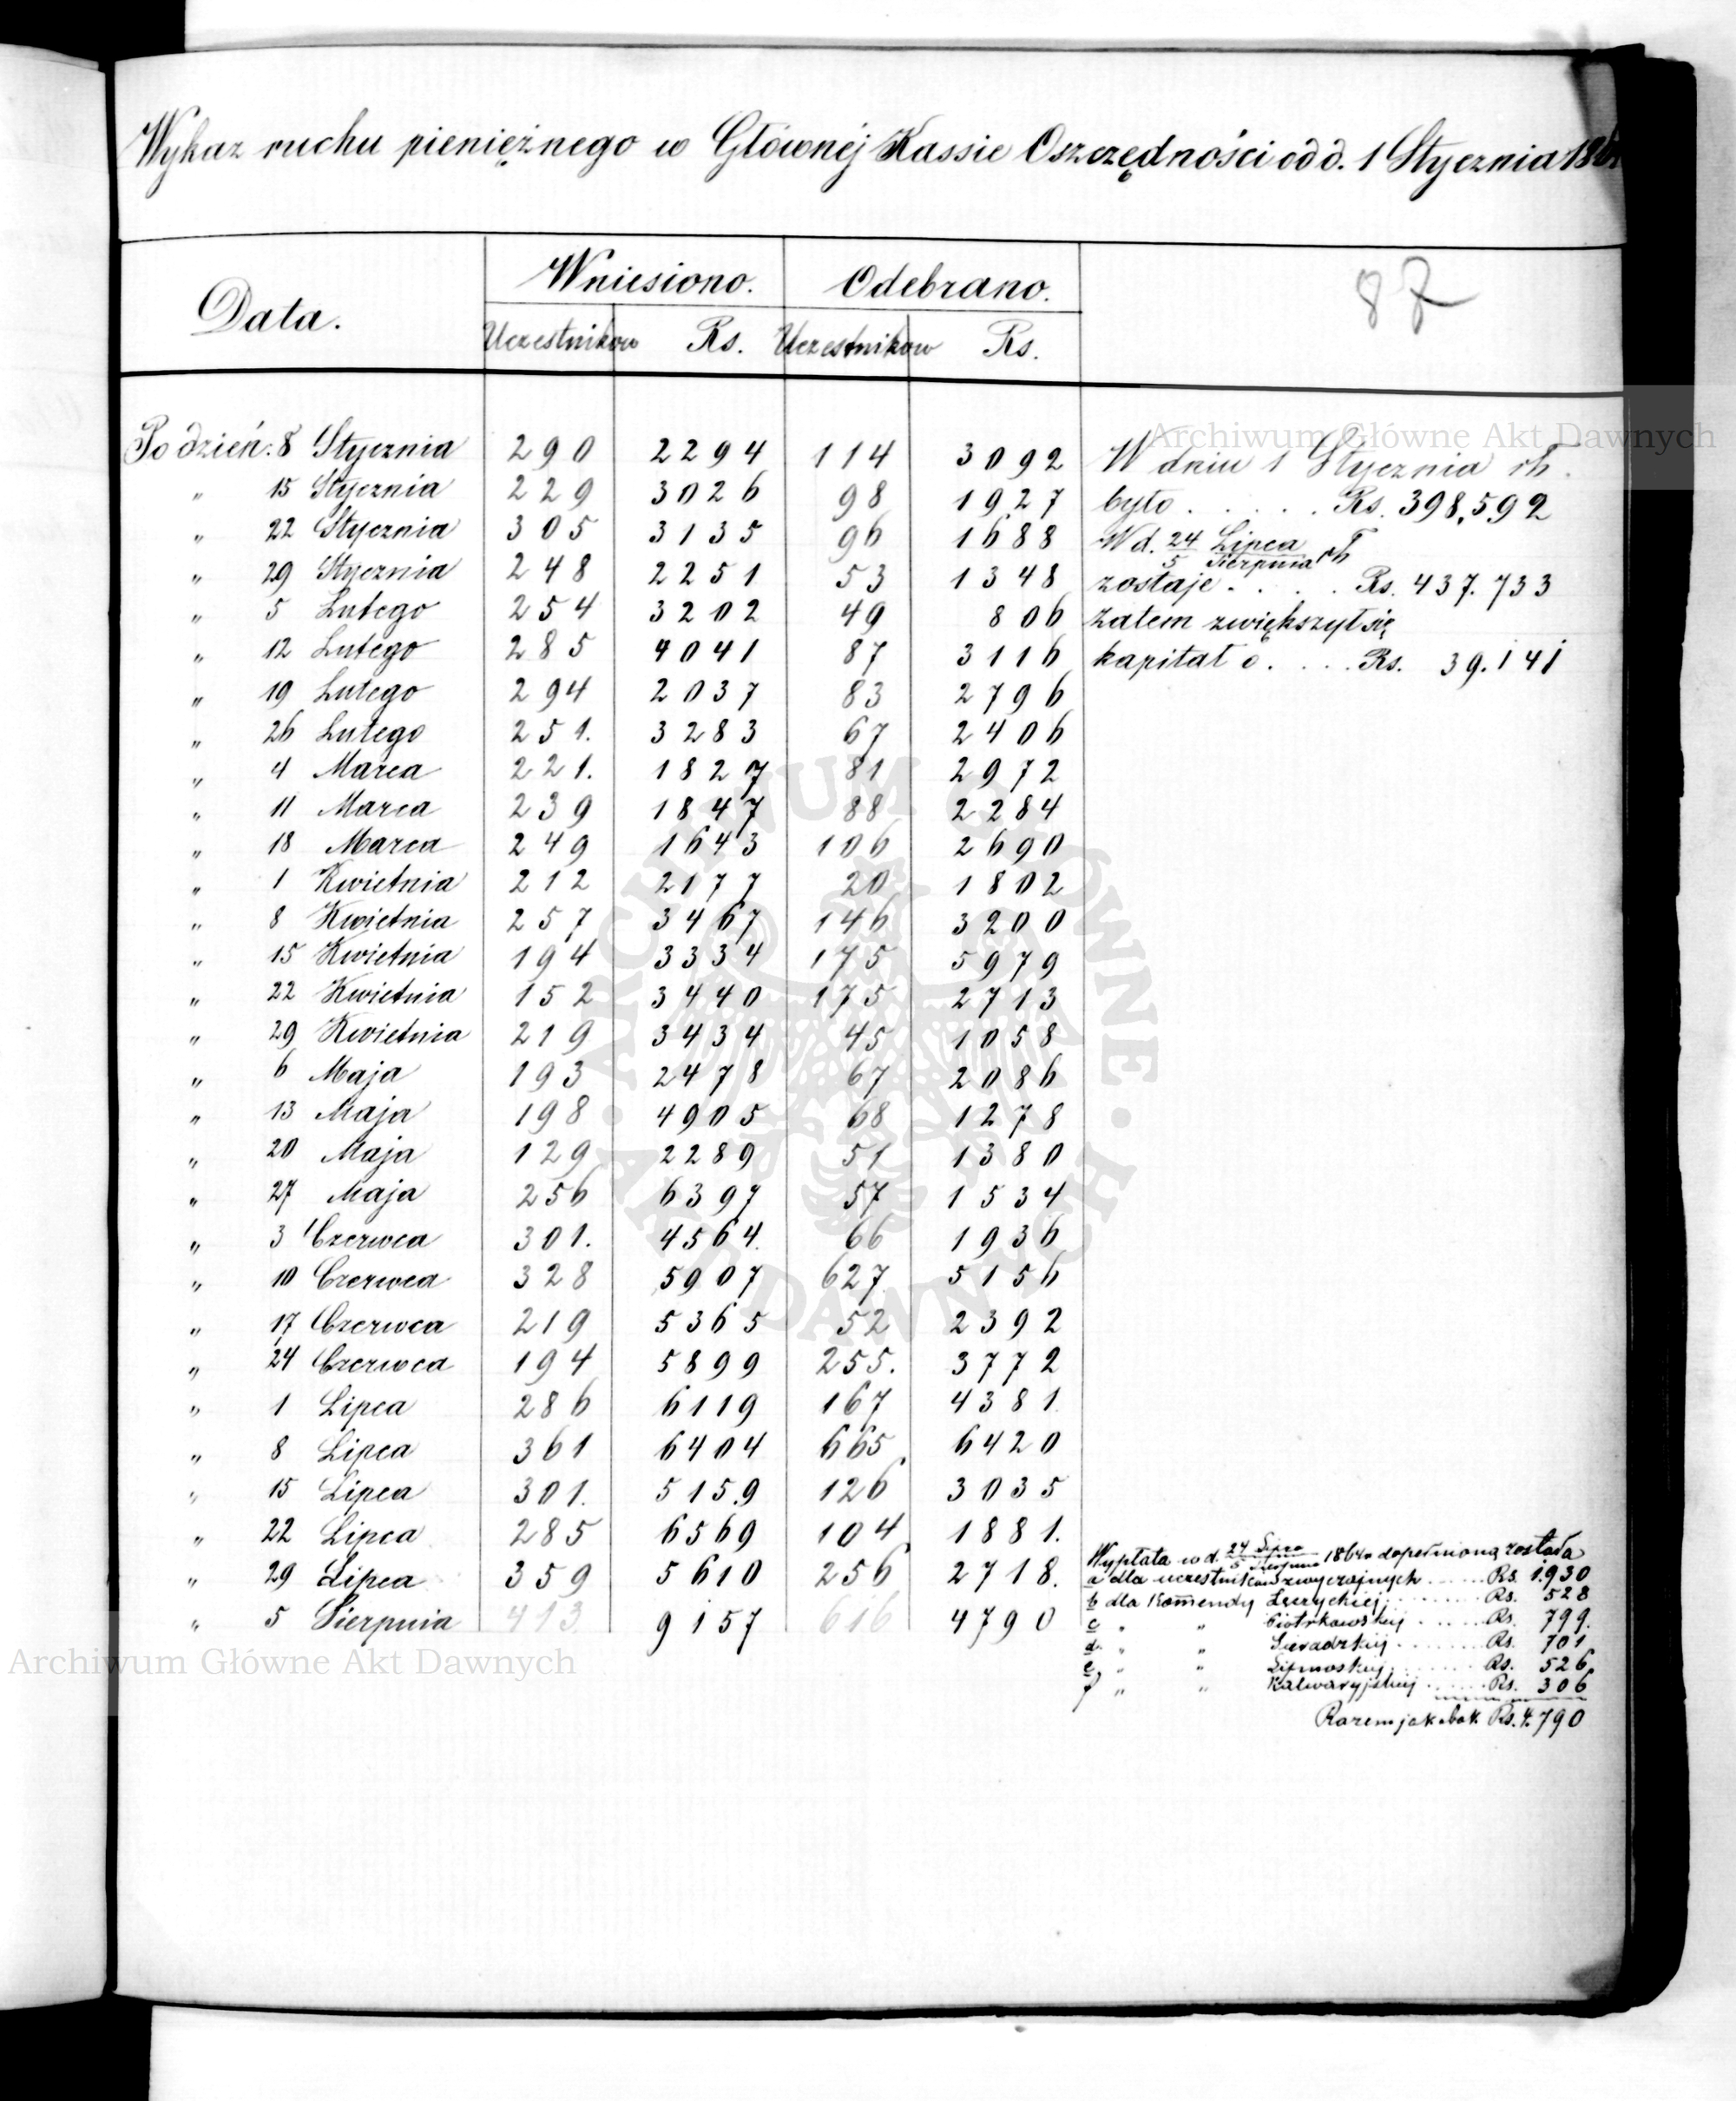 Wykaz ruchu pieniężnego w Głównéj Kassie Oszczędności od d. 1 Stycznia
87
Data. Wniesiono. Odebrano.
Uczestnikow Rs. Uczestnikow Rs.
Po dzień: 8 Stycznia 290 2294 114 3092 W dniu 1 Stycznia rb.
" 15 Stycznia 229 3026 98 1927 było . . . . . Rs. 398.592
" 22 Stycznia 305 3135 96 1688 W d. 24 Lipca / 5 Sierpnia rb
" 29 Stycznia 248 2251 53 1348 zostaje . . . . Rs. 437.733
" 5 Lutego 254 3202 49 806 zatem zwiększył się
" 12 Lutego 285 4041 87 3116 kapitał o . . . . Rs. 39.141
" 19 Lutego 294 2037 83 2796
" 26 Lutego 251. 3283 67 2406
" 4 Marca 221. 1827 81 2972
" 11 Marca 239 1847 88 2284
" 18 Marca 249 1643 106 2690
" 1 Kwietnia 212 2177 20 1802
" 8 Kwietnia 257 3467 146 3200
" 15 Kwietnia 194 3334 175 5979
" 22 Kwietnia 152 3440 175 2713
" 29 Kwietnia 219 3434 45 1058
" 6 Maja 193 2478 67 2086
" 13 Maja 198 4905 68 1278
" 20 Maja 129 2289 51 1380
" 27 Maja 256 6397 57 1534
" 3 Czerwca 301. 4564. 66 1936
" 10 Czerwca 328 5907 627 5156
" 17 Czerwca 219 5365 52 2392
" 24 Czerwca 194 5899 255. 3772
" 1 Lipca 286 6119 167 4381.
" 8 Lipca 361 6404 665 6420
" 15 Lipca 301. 5159 126 3035
" 22 Lipca 285 6569 104 1881.
" 29 Lipca 359 5610 256 2718.
" 5 Sierpnia 413 9157 616 4790
Wypłata w d. 24 Lipca / 5 Sierpnia 1864 r dopełnioną została
a dla uczestników zwyczajnych . . . . . Rs. 1.930
b dla Komendy Łęczyckiej . . . . . Rs. 528
c " " Piotrkowskiej . . . . . Rs. 799.
d. " " Sieradzkiej . . . . . Rs. 701
e, " " Lipnoskiej . . . . . Rs. 526
f " " Kalwaryjskiej . . . . . Rs. 306
Razem jak obok Rs. 4.790
Archiwum Główne Akt Dawnych
Archiwum Główne Akt Dawnych
ARCHIWUM GŁÓWNE · AKT DAWNYCH ·